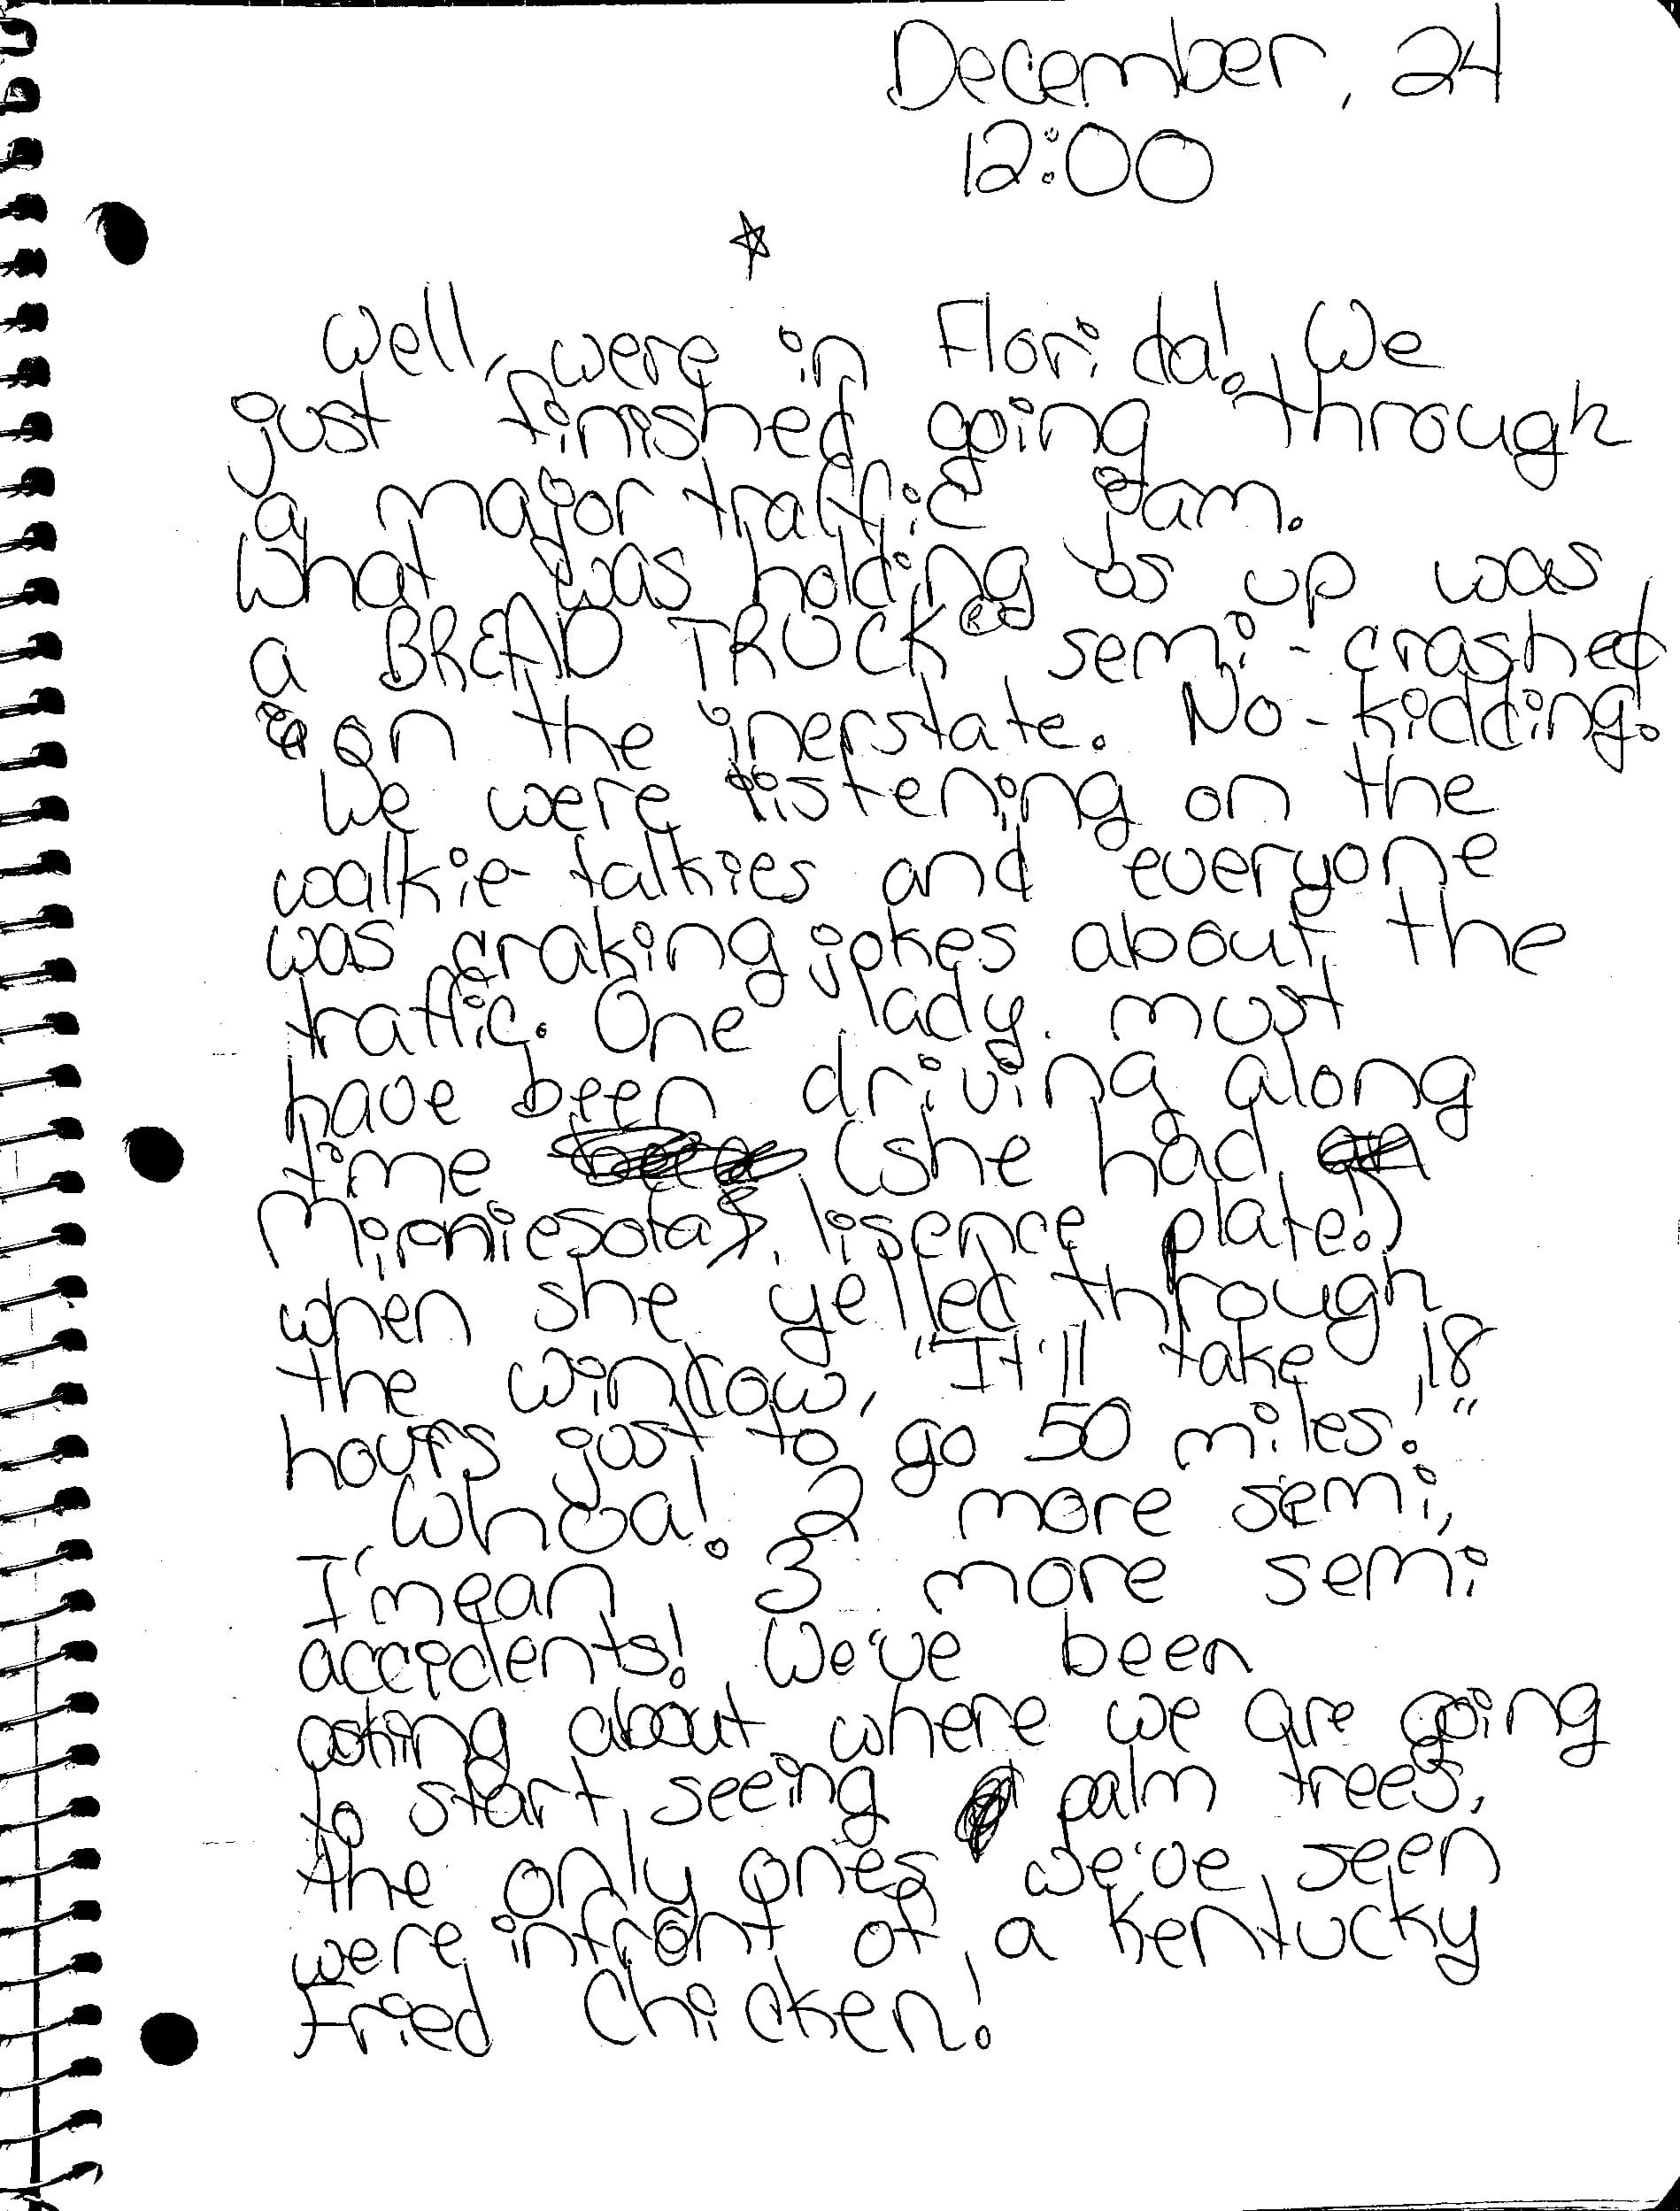 December, 24
12:00
Well, were in Florida! We
just finished going through
a major traffic jam.
What was holding us up was
a BREAD TRUCK® semi-crashed
on the inerstate. No-kidding!
We were listening on the
walkie-talkies and everyone
was craking jokes about the
traffic. One lady must
have been driving along
time (she had
Minniesota lisence plate!)
when she yelled through
the window, "It'll take 18
hours just to go 50 miles!"
Whoa! 2 more semi,
I mean 3 more semi
accidents! We've been
asking about where we are going
to start seeing palm trees,
the only ones we've seen
were infront of a Kentucky
Fried Chicken!